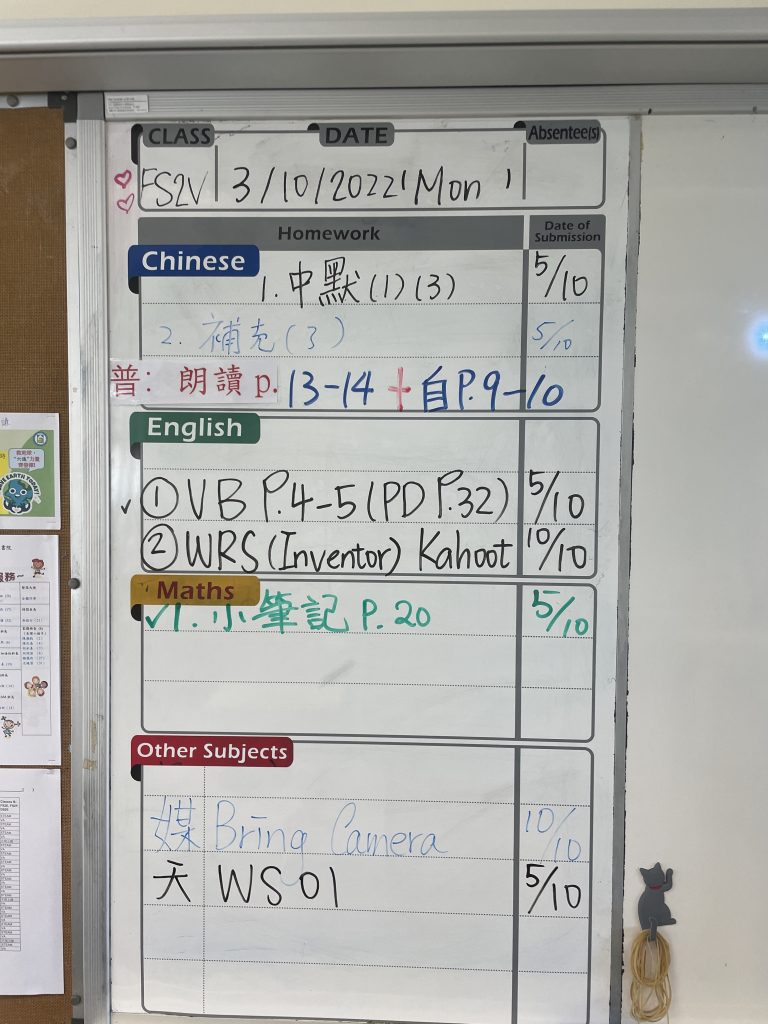 CLASS DATE Absentee(s)
FS2V 3/10/2022 (Mon)
Homework Date of Submission
Chinese
1. 中默(1)(3) 5/10
2. 補充(3) 5/10
普: 朗讀 p. 13-14 + 自P.9-10
English
✓ ① VB P.4-5 (PD P.32) 5/10
② WRS (Inventor) Kahoot 10/10
Maths
✓1. 小筆記 P.20 5/10
Other Subjects
媒 Bring Camera 10/10
天 WS 01 5/10